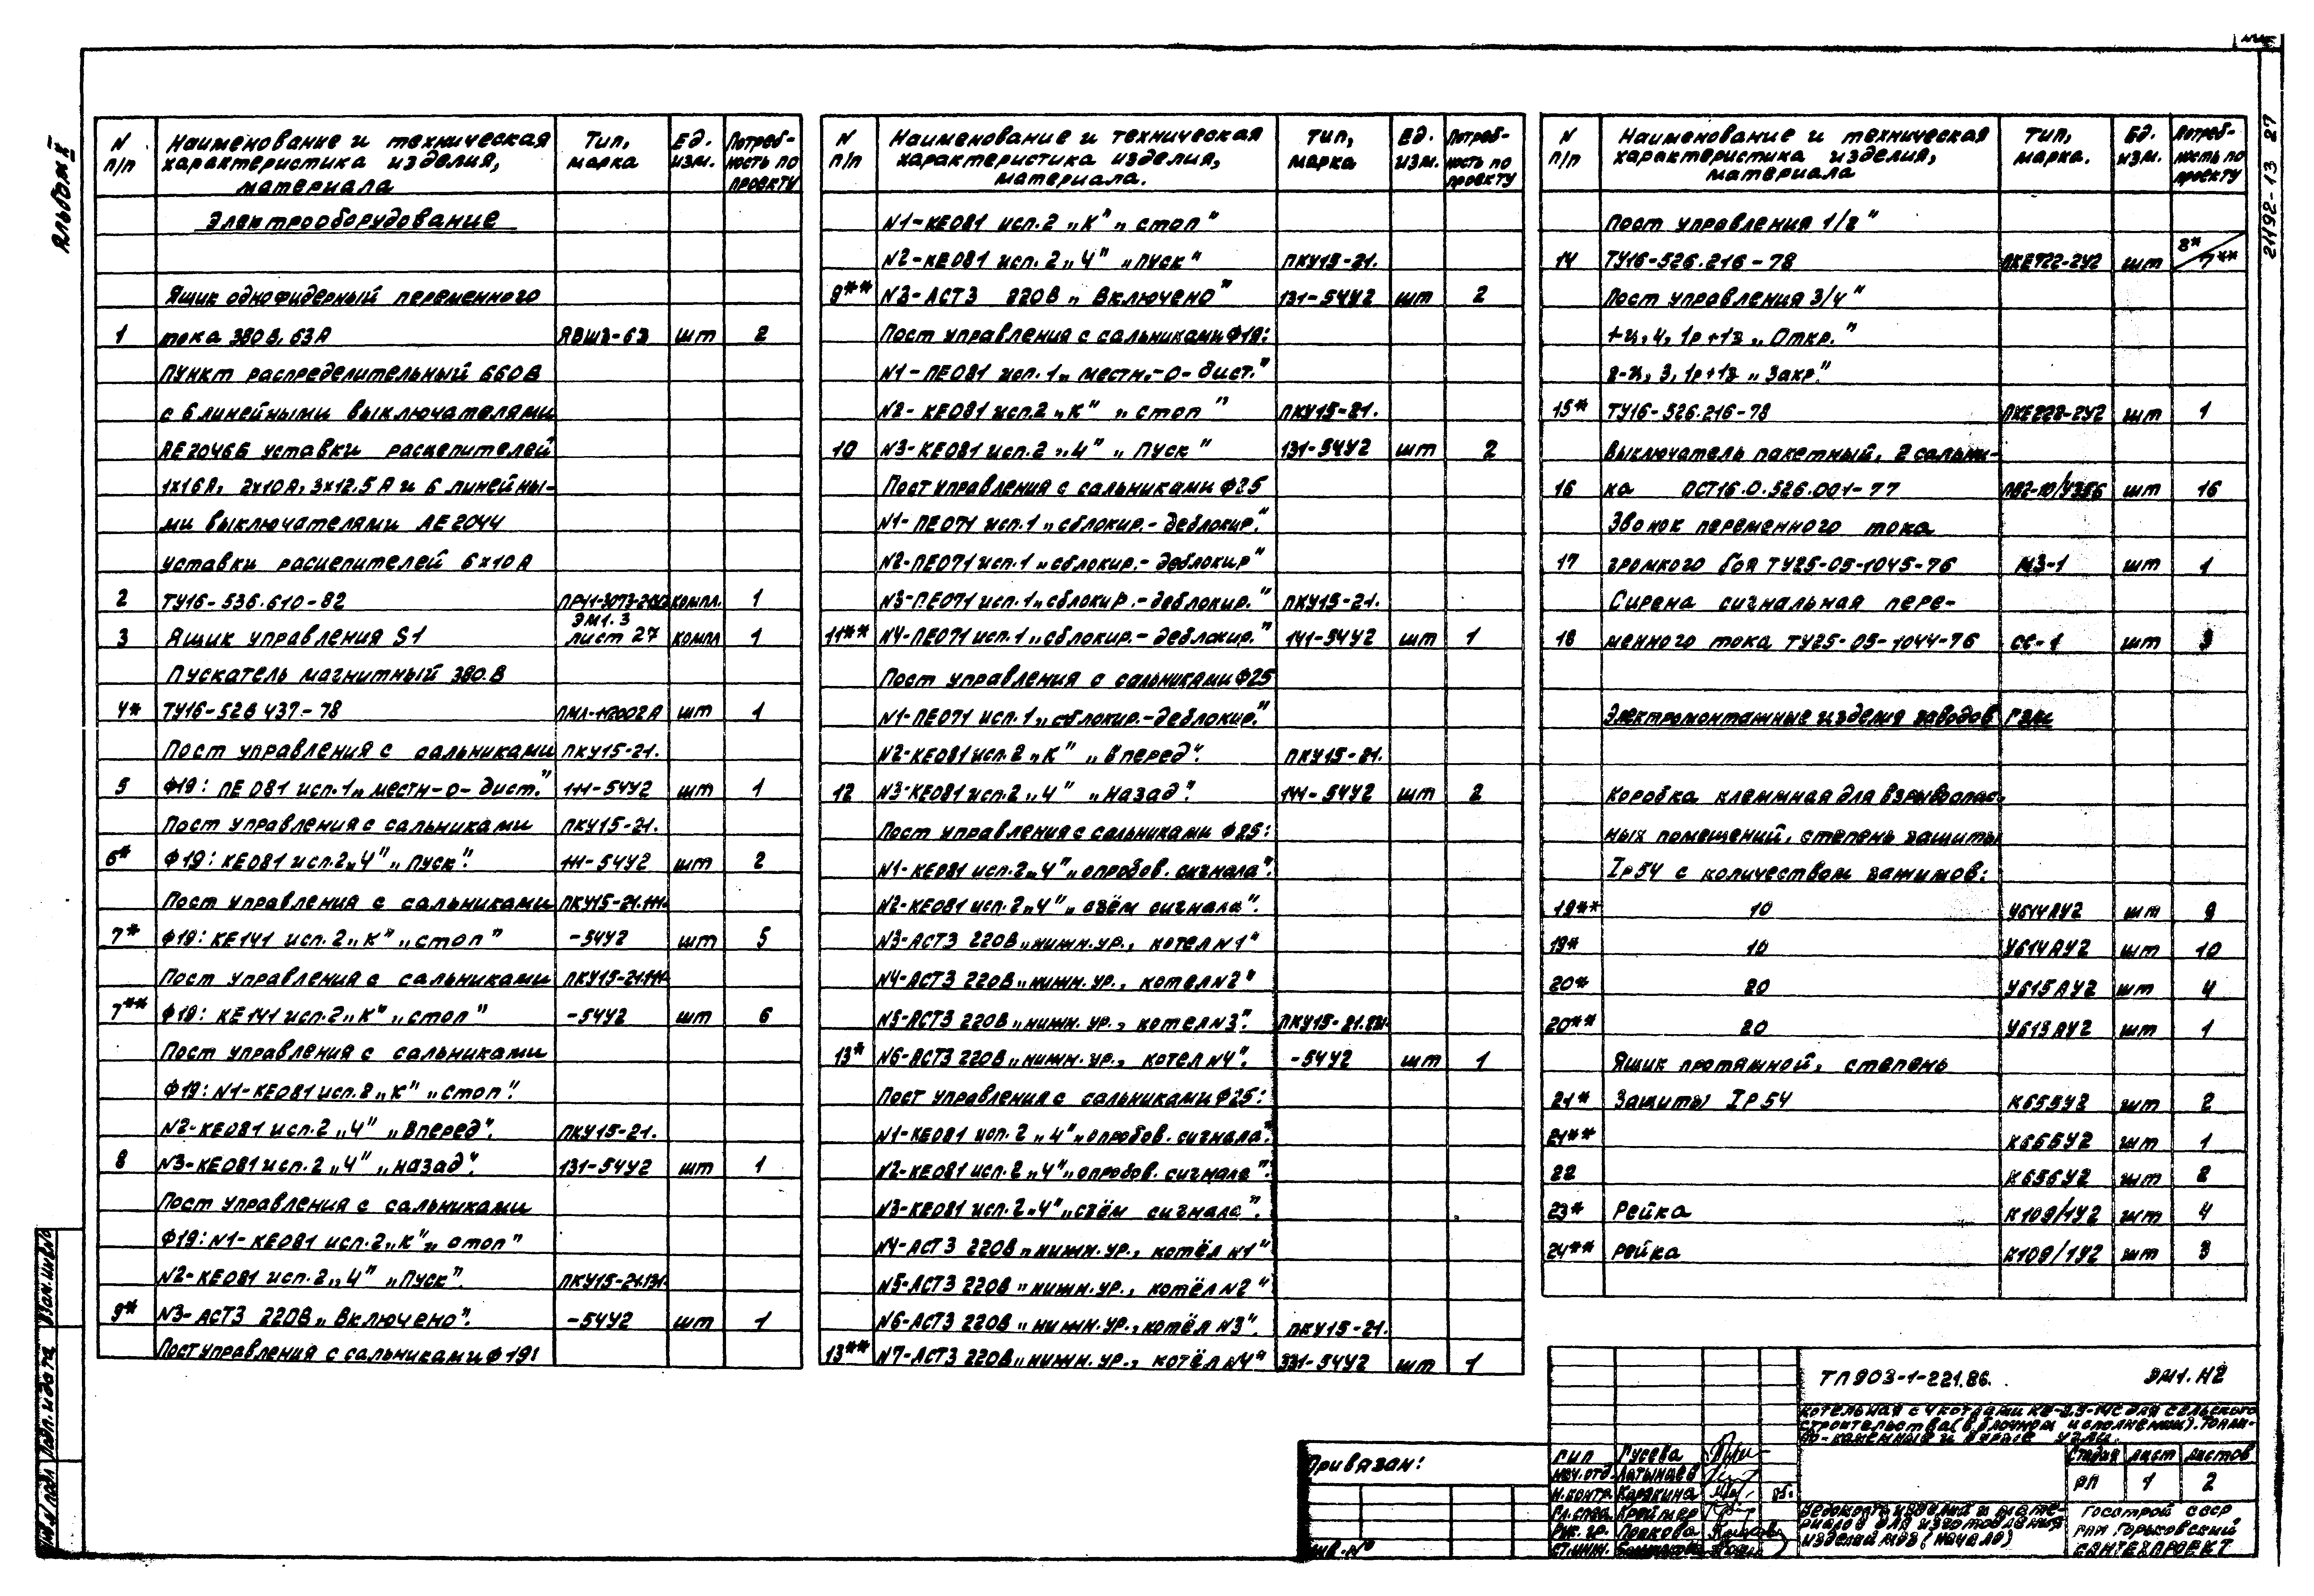 Альбом X
21192-13 27
N п/п | Наименование и техническая характеристика изделия, материала | Тип, марка | Ед. изм. | Потреб-ность по проекту
Электрооборудование
Ящик однофидерный переменного
1 тока 380В, 63А ЯВШ3-63 шт 2
Пункт распределительный 660В
с 6 линейными выключателями
АЕ2046Б уставки расцепителей
1х16А, 2х10А, 3х12.5А и 6 линейны-
ми выключателями АЕ2044
уставки расцепителей 6х10А
2 ТУ16-536.610-82 компл. 1
ЭМ1.3
3 Ящик управления S1 лист 27 компл 1
Пускатель магнитный 380.В
4* ТУ16-526 437-78 шт 1
Пост управления с сальниками ПКУ15-21.
5 Ф19: ПЕ081 исп.1 „местн-о-дист." 111-54У2 шт 1
Пост управления с сальниками ПКУ15-21.
6* Ф19: КЕ081 исп.2 „Ч" „Пуск". 111-54У2 шт 2
Пост управления с сальниками ПКУ15-21.111-
7* Ф19: КЕ141 исп.2 „К" „стоп" -54У2 шт 5
Пост управления с сальниками ПКУ15-21.111-
7** Ф19: КЕ141 исп.2 „К" „стоп" -54У2 шт 6
Пост управления с сальниками
Ф19: N1-КЕ081 исп.2 „К" „Стоп".
N2-КЕ081 исп.2 „Ч" „Вперед". ПКУ15-21.
8 N3-КЕ081 исп.2 „Ч" „назад". 131-54У2 шт 1
Пост управления с сальниками
Ф19: N1-КЕ081 исп.2 „К" „стоп"
N2-КЕ081 исп.2 „Ч" „Пуск". ПКУ15-21.131-
9* N3-АСТ3 220В „Включено". -54У2 шт 1
Пост управления с сальниками Ф19:
N п/п | Наименование и техническая характеристика изделия, материала. | Тип, марка | Ед. изм. | Потреб-ность по проекту
N1-КЕ081 исп.2 „К" „стоп"
N2-КЕ081 исп.2 „Ч" „Пуск" ПКУ15-21.
9** N3-АСТ3 220В „Включено" 131-54У2 шт 2
Пост управления с сальниками Ф19:
N1-ПЕ081 исп.1 „местн.-о-дист."
N2-КЕ081 исп.2 „К" „стоп" ПКУ15-21.
10 N3-КЕ081 исп.2 „Ч" „Пуск" 131-54У2 шт 2
Пост управления с сальниками Ф25
N1-ПЕ071 исп.1 „сблокир.-деблокир."
N2-ПЕ071 исп.1 „сблокир.-деблокир"
N3-ПЕ071 исп.1 „сблокир.-деблокир." ПКУ15-21.
11** N4-ПЕ071 исп.1 „сблокир.-деблокир." 141-54У2 шт 1
Пост управления с сальниками Ф25
N1-ПЕ071 исп.1 „сблокир.-деблокир."
N2-КЕ081 исп.2 „К" „вперед". ПКУ15-21.
12 N3-КЕ081 исп.2 „Ч" „назад". 141-54У2 шт 2
Пост управления с сальниками Ф25:
N1-КЕ081 исп.2 „Ч" „опробов. сигнала".
N2-КЕ081 исп.2 „Ч" „съём сигнала".
N3-АСТ3 220В „нижн.ур., котел N1"
N4-АСТ3 220В „нижн.ур., котел N2"
N5-АСТ3 220В „нижн.ур., котел N3". ПКУ15-21.
13* N6-АСТ3 220В „нижн.ур., котел N4". -54У2 шт 1
Пост управления с сальниками Ф25:
N1-КЕ081 исп.2 „Ч" „опробов. сигнала".
N2-КЕ081 исп.2 „Ч" „опробов. сигнала".
N3-КЕ081 исп.2 „Ч" „съём сигнала".
N4-АСТ3 220В „нижн.ур., котёл N1"
N5-АСТ3 220В „нижн.ур., котёл N2"
N6-АСТ3 220В „нижн.ур., котёл N3". ПКУ15-21.
13** N7-АСТ3 220В „нижн.ур., котёл N4" 331-54У2 шт 1
N п/п | Наименование и техническая характеристика изделия, материала | Тип, марка. | Ед. изм. | Потреб-ность по проекту
Пост управления 1/2"
14 ТУ16-526.216-78 ПКЕ722-2У2 шт 8*/7**
Пост управления 3/4"
1-ц, ч, 1р+1з „Откр."
2-ц, 3, 1р+1з „Закр."
15* ТУ16-526.216-78 ПКЕ222-2У2 шт 1
Выключатель пакетный, 2 сальни-
16 ка ОСТ16.0.526.001-77 шт 16
Звонок переменного тока
17 громкого боя ТУ25-05-1045-76 МЗ-1 шт 1
Сирена сигнальная пере-
18 менного тока ТУ25-05-1044-76 СС-1 шт 3
Электромонтажные изделия заводов ГЭМ
Коробка клеммная для взрывоопас-
ных помещений, степень защиты
Iр54 с количеством зажимов:
19** 10 У614АУ2 шт 9
19* 10 У614АУ2 шт 10
20* 20 У615АУ2 шт 4
20** 20 У615АУ2 шт 1
Ящик протяжной, степень
21* защиты IP54 К655У2 шт 2
21** шт 1
22 К656У2 шт 2
23* Рейка К109/1У2 шт 4
24** Рейка К109/1У2 шт 3
ТП 903-1-221.86. ЭМ1.Н2
Котельная с 4 котлами КЕ-2,5-14С для сельского
строительства (в блочном исполнении). Топли-
во-каменные и бурые угли.
Стадия лист листов
РП 1 2
Ведомость изделий и мате-
риалов для изготовления
изделий МЭЗ (начало)
Госстрой СССР
ГПИ Горьковский
САНТЕХПРОЕКТ
Привязан:
Инв.N°
ГИП Гусева
Нач.отд. Латынцев
Н.контр. Карякина 85.
Гл.спец. Крейтер
Рук.гр.
Ст.инж.
Инв.N подл Подп. и дата Взам.инв.N